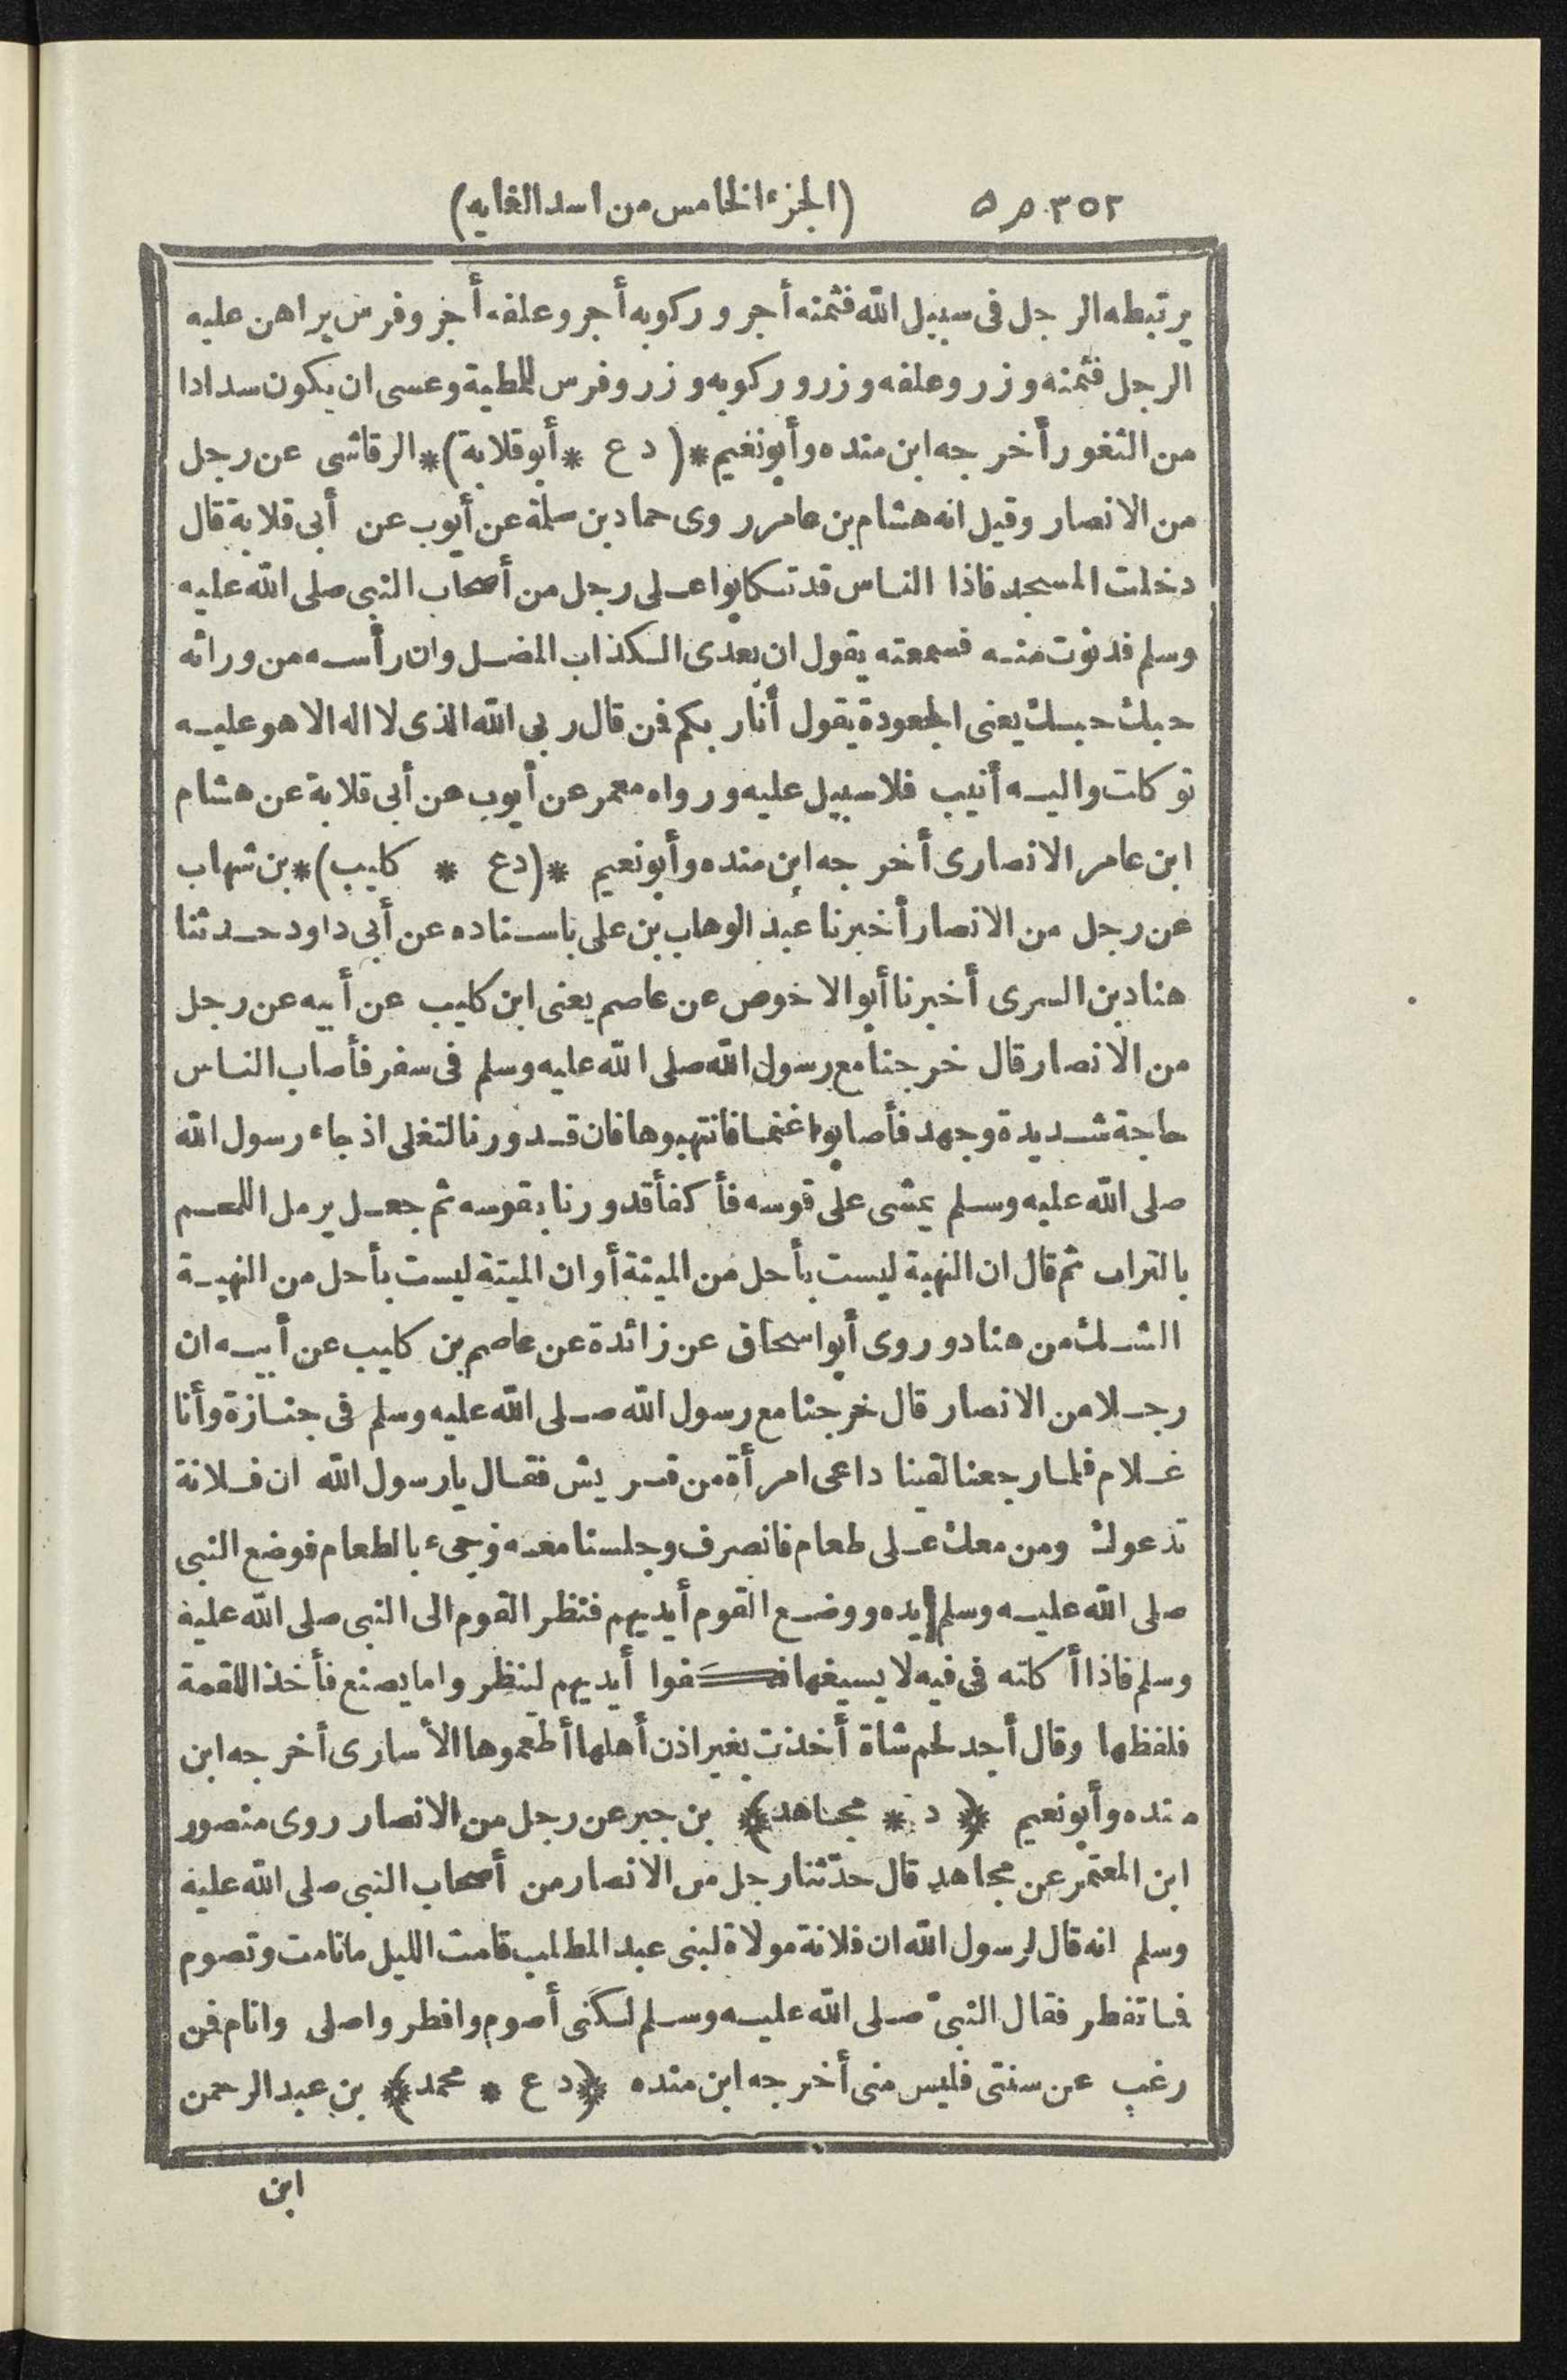 ٣٥٢ ص ٥ (الجزء الخامس من اسد الغابه)
يرتبطه الرجل فى سبيل الله فثمنه أجر وركوبه أجر وعلفه أجر وفرس يراهن عليه
الرجل فثمنه وزر وعلفه وزر وركوبه وزر وفرس للمطية وعسى ان يكون سدادا
من الثغور أخرجه ابن منده وأبو نعيم *(د ع * أبو قلابة)* الرقاشى عن رجل
من الانصار وقيل انه هشام بن عامر روى حماد بن سلمة عن أيوب عن أبى قلابة قال
دخلت المسجد فاذا الناس قد تكابوا على رجل من أصحاب النبى صلى الله عليه
وسلم فدنوت منه فسمعته يقول ان بعدى الكذاب المضل وان رأسه من ورائه
حبك حبك يعنى الجعودة يقول أنا ربكم فن قال ربى الله الذى لا اله الا هو عليه
توكلت واليه أنيب فلا سبيل عليه ورواه معمر عن أيوب عن أبى قلابة عن هشام
ابن عامر الانصارى أخرجه ابن منده وأبو نعيم *(د ع * كليب)* بن شهاب
عن رجل من الانصار أخبرنا عبد الوهاب بن على باسناده عن أبى داود حدثنا
هناد بن السرى أخبرنا أبو الاخوص عن عاصم يعنى ابن كليب عن أبيه عن رجل
من الانصار قال خرجنا مع رسول الله صلى الله عليه وسلم فى سفر فأصاب الناس
حاجة شديدة وجهد فأصابوا غنما فانتهبوها فان قدورنا لتغلى اذ جاء رسول الله
صلى الله عليه وسلم يمشى على قوسه فأكفأ قدورنا بقوسه ثم جعل يرمل اللحم
بالتراب ثم قال ان النهبة ليست بأحل من الميتة أو ان الميتة ليست بأحل من النهبة
الشك من هناد وروى أبو اسحاق عن زائدة عن عاصم بن كليب عن أبيه ان
رجلا من الانصار قال خرجنا مع رسول الله صلى الله عليه وسلم فى جنازة وأنا
غلام فلما رجعنا لقينا داعى امرأة من قريش فقال يا رسول الله ان فلانة
تدعوك ومن معك على طعام فانصرف وجلسنا معه وجىء بالطعام فوضع النبى
صلى الله عليه وسلم يده ووضع القوم أيديهم فنظر القوم الى النبى صلى الله عليه
وسلم فاذا أكلته فى فيه لا يسيغها فكفوا أيديهم لينظروا ما يصنع فأخذ اللقمة
فلفظها وقال أجد لحم شاة أخذت بغير اذن أهلها أطعموها الأسارى أخرجه ابن
منده وأبو نعيم *(د * مجاهد)* بن جبر عن رجل من الانصار روى منصور
ابن المعتمر عن مجاهد قال حدّثنا رجل من الانصار من أصحاب النبى صلى الله عليه
وسلم انه قال لرسول الله ان فلانة مولاة لبنى عبد المطلب قامت الليل ما نامت وتصوم
فما تفطر فقال النبىّ صلى الله عليه وسلم لكنى أصوم وافطر واصلى وانام فن
رغب عن سنتى فليس منى أخرجه ابن منده *(د ع * محمد)* بن عبد الرحمن
ابن